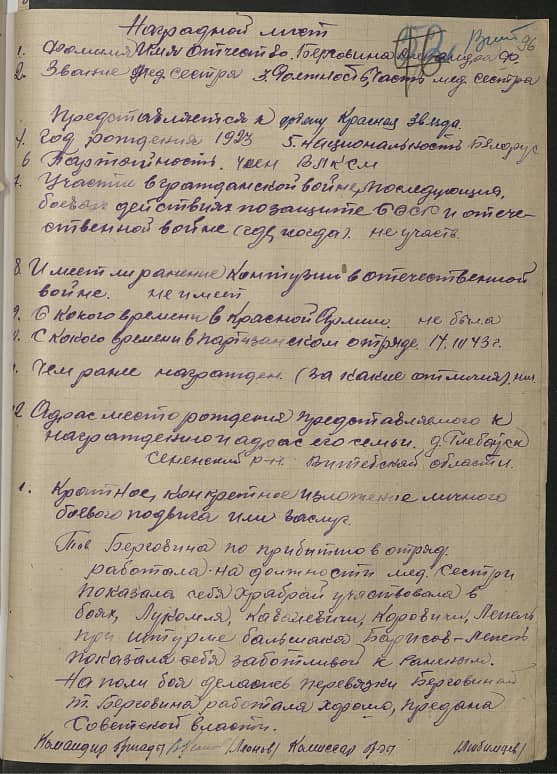 Наградной лист
1. Фамилия Имя Отчество, Берговина
2. Звание мед сестра 3. Должность, часть мед. сестра
Представляется к ордену Красная Звезда.
4. Год рождения 1923 5. Национальность Белорус
6 Партийность. член ВЛКСМ
7. Участие в гражданской войне, последующих,
боевых действиях по защите СССР и отече-
ственной войне (где, когда). не участв.
8. Имеет ли ранение контузии в отечественной
войне. не имеет
9. С кокого времени в Красной Армии не была
С кокого времени в партизанском отряде. 17.III 43 г.
Чем ране награжден. (за какие отличия)
2 Адрас место рождения представляемого к
награждению и адрас его семьи. д.
Сененский р-н. Витебской области.
1. Кратное, конкретное изложение личного
боевого подвига или заслуг.
Тов Берговина по прибытию в отряд.
работала на должности мед. сестри
показала себя храброй участвовала в
боях, Лукомля, Каровичи, Лепель
при штурме Барисов-Лепель
показала себя заботливой к раненым.
На поли боя делались перевязки Берговиной
т. Берговина работала хорошо, предана
Советской власти.
Командир бригады (Леонов) Комиссар бр-ды
96